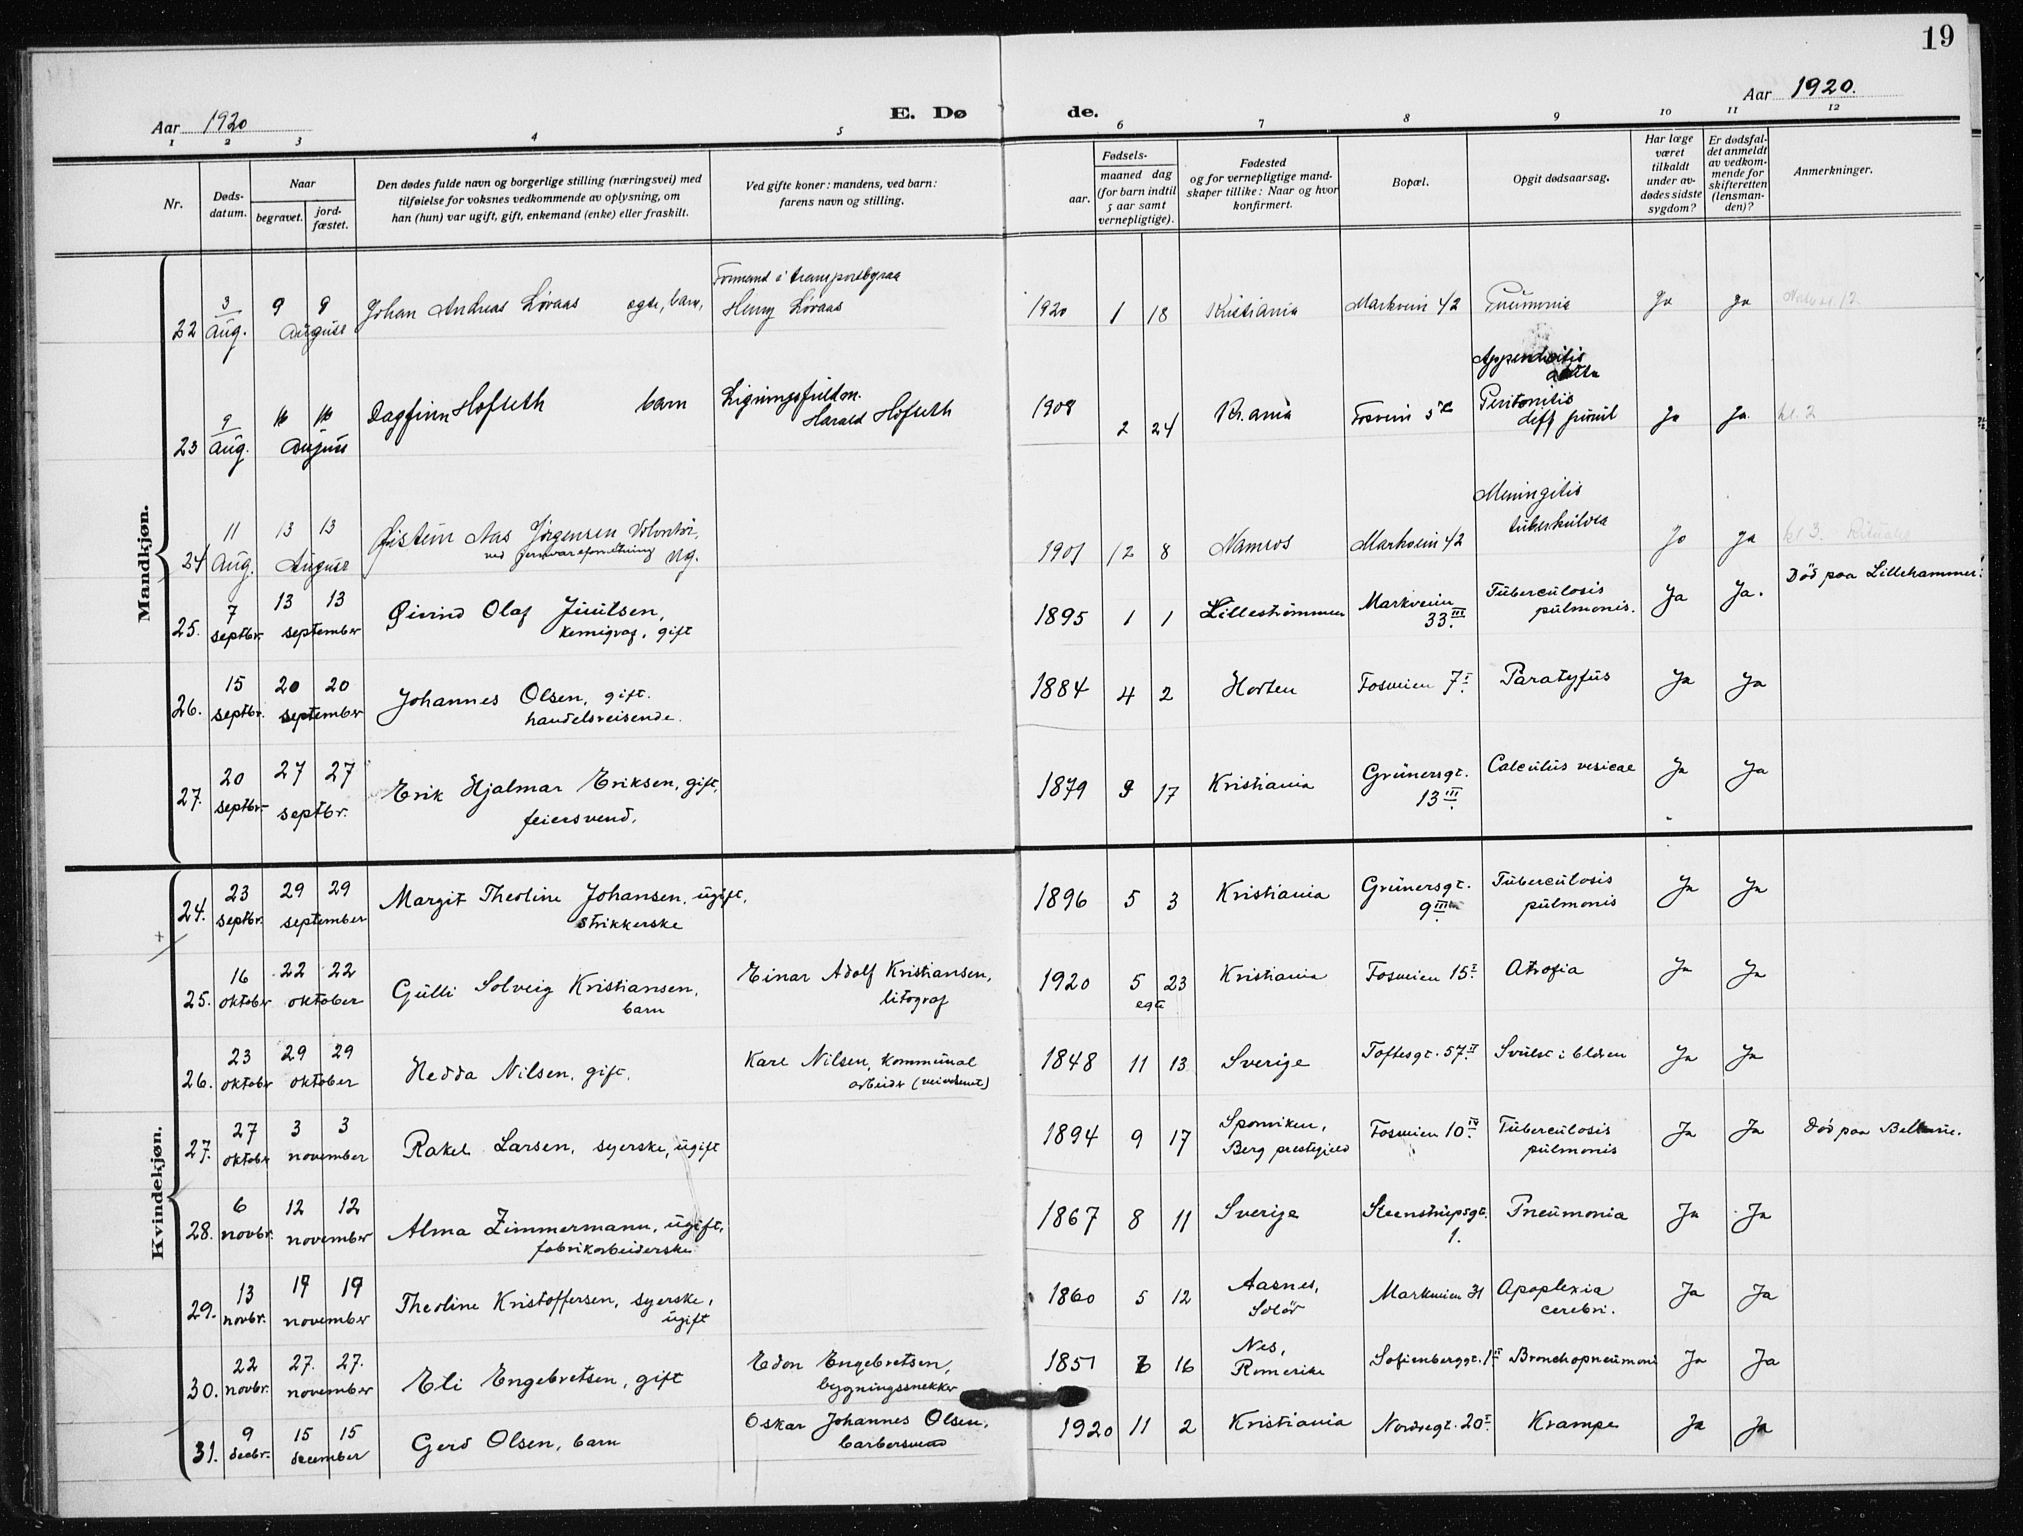 19
Aar 1920
E. Dø
de.
Aar 1920.
1 2 3 4 5 6 7 8 9 10 11 12
Nr.
Døds-
datum.
Naar
begravet.
jord-
fæstet.
Den dødes fulde navn og borgerlige stilling (næringsvei) med
tilføielse for voksnes vedkommende av oplysning, om
han (hun) var ugift, gift, enkemand (enke) eller fraskilt.
Ved gifte koner: mandens, ved barn:
farens navn og stilling.
Fødsels-
aar.
maaned dag
(for barn indtil
5 aar samt
vernepligtige).
Fødested
og for vernepligtige mand-
skaper tillike: Naar og hvor
konfirmert.
Bopæl.
Opgit dødsaarsag.
Har læge
været
tilkaldt
under av-
dødes sidste
sygdom?
Er dødsfal-
det anmeldt
av vedkom-
mende for
skifteretten
(lensman-
den)?
Anmerkninger.
Mandkjøn.
22 3 Aug. 9 9 August Johan Andreas Løvaas ægte, barn, Formand i transportbyraa
Henry Løvaas 1920 1 18 Kristiania Markvein 42 Pneumonia Ja Ja
23 9 Aug. August Dagfinn Hofseth barn Ligningsfuldm.
Harald Hofseth 1908 2 24 Kr.ania Fosvein 5 Appendicitis
acuta
Peritonitis
diff Ja Ja kl. 2
24 11 Aug. 13 13 August Øistein Aas Jørgensen Volontør,
ved jernvareforretning ug. 1901 12 8 Namsos Markvein 42 Meningitis
tuberkulosa Ja Ja kl 3.
25. 7 septbr. 13 13 september Øivind Olaf Juulsen,
kemigraf, gift 1895 1 1 Lillestrømmen Markveien
33 III. Tuberculosis
pulmonis. Ja Ja. Død paa Lillehammer.
26. 15 septbr. 20 20 september Johannes Olsen, gift.
handelsreisende. 1884 4 2 Horten Fosveien 7 I. Paratyfus Ja Ja
27. 20 septbr. 27 27 septbr. Erik Hjalmar Eriksen, gift,
feiersvend. 1879 9 17 Kristiania Grünersgt.
13 III. Calculus vesicae Ja Ja
Kvindekjøn.
24. 23 septbr. 29 29 september Margit Theoline Johansen, ugift,
strikkerske 1896 5 3 Kristiania Grünersgt.
9 III Tuberculosis
pulmonis Ja Ja
+
25. 16 oktober 22 22 oktober Gulli Solveig Kristiansen,
barn Einar Adolf Kristiansen,
litograf 1920 5 23
egte Kristiania Fosveien 15 I. Atrofia Ja Ja
26. 23 oktobr 29 29 oktober Hedda Nilsen, gift. Karl Nilsen, kommunal
arbeider (veivesenet) 1848 11 13 Sverige Toftesgt. 57 II Svulst i blæren Ja Ja
27. 27 oktobr 3 3 november Rakel Larsen, syerske, ugift 1894 9 17 Sponviken,
Berg prestegjeld Fosveien 10 IV. Tuberculosis
pulmonis Ja Ja Død paa Bellevue.
28. 6 novbr. 12 12 november Alma Zimmermann, ugift,
fabrikarbeiderske 1867 8 11 Sverige Steenstrupsgt.
1. Pneumonia Ja Ja
29. 13 novbr. 19 19 november Theoline Kristoffersen, syerske,
ugift 1860 5 12 Aasnes,
Solør Markveien 31 Apoplexia
cerebri. Ja Ja
30. 22 novbr. 27. 27. november Eli Engebretsen, gift Edon Engebretsen,
bygningssnekker 1851 16 Nes,
Romerike Sofienberggt. 1 II Bronchopneumoni Ja Ja
31. 9 decbr. 15 15 december Gerd Olsen, barn Oskar Johannes Olsen,
barbersvend 1920 11 2 Kristiania Nordregt. 20 I. Krampe Ja Ja